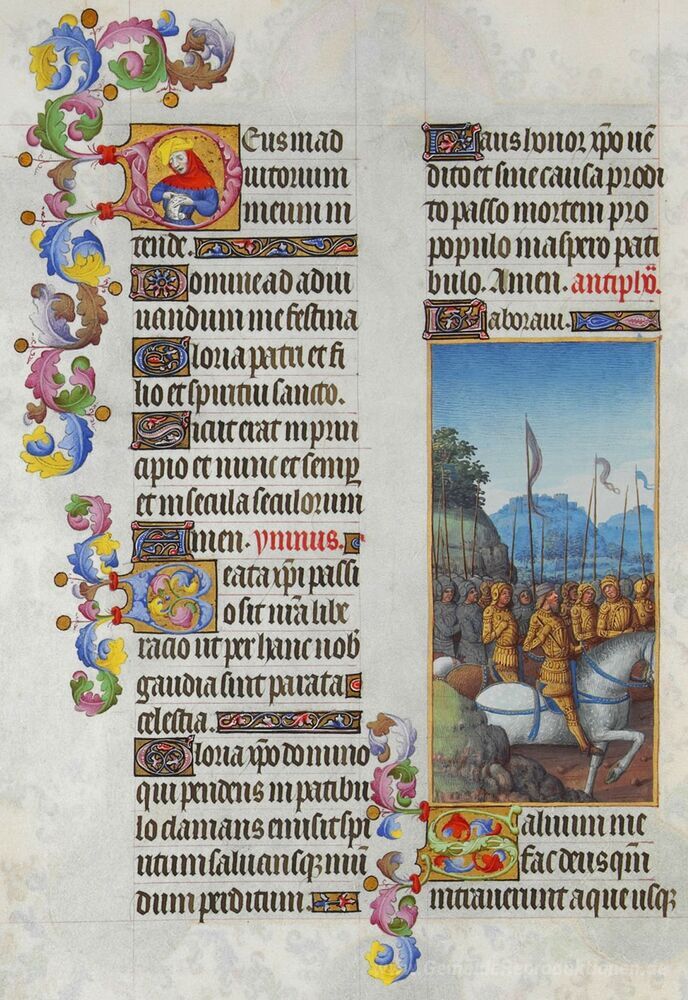 Deus in ad
iutorium
meum in
tende.
Domine ad adiu
uandum me festina
Gloria patri et fi
lio et spiritui sancto.
Sicut erat in prin
cipio et nunc et semp
et in secula seculorum
Amen. ymnus.
Beata xpi passi
o sit nra libe
racio ut per hanc nob
gaudia sint parata
celestia.
Gloria xpo domino
qui pendens in patibu
lo clamans emisit spi
ritum saluansq mun
dum perditum.
Laus honor xpo uen
dito et sine causa prodi
to passo mortem pro
populo in aspero pati
bulo. Amen. antiph.
Laboraui.
Saluum me
fac deus qm
intrauerunt aque usq